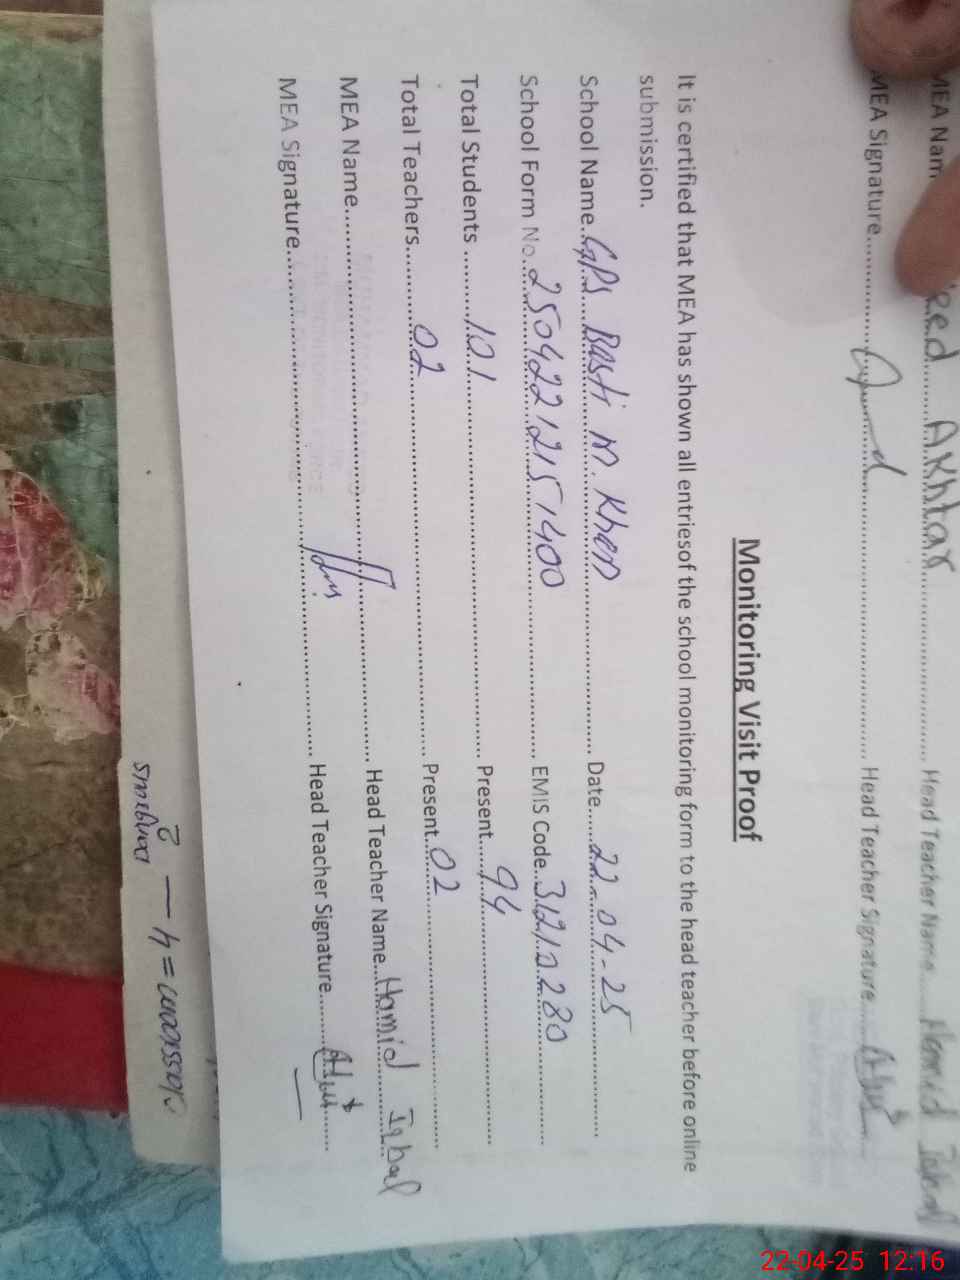 MEA Nam eed Akhtar Head Teacher Name Hamid Iqbal
MEA Signature Head Teacher Signature
Monitoring Visit Proof
It is certified that MEA has shown all entriesof the school monitoring form to the head teacher before online
submission.
School Name GPS Basti M. Khan Date 22-04-25
School Form No 25042212151400 EMIS Code 31210280
Total Students 101 Present 94
Total Teachers 02 Present 02
MEA Name Head Teacher Name Hamid Iqbal
MEA Signature Head Teacher Signature
classroom = 4 —
22-04-25 12:16